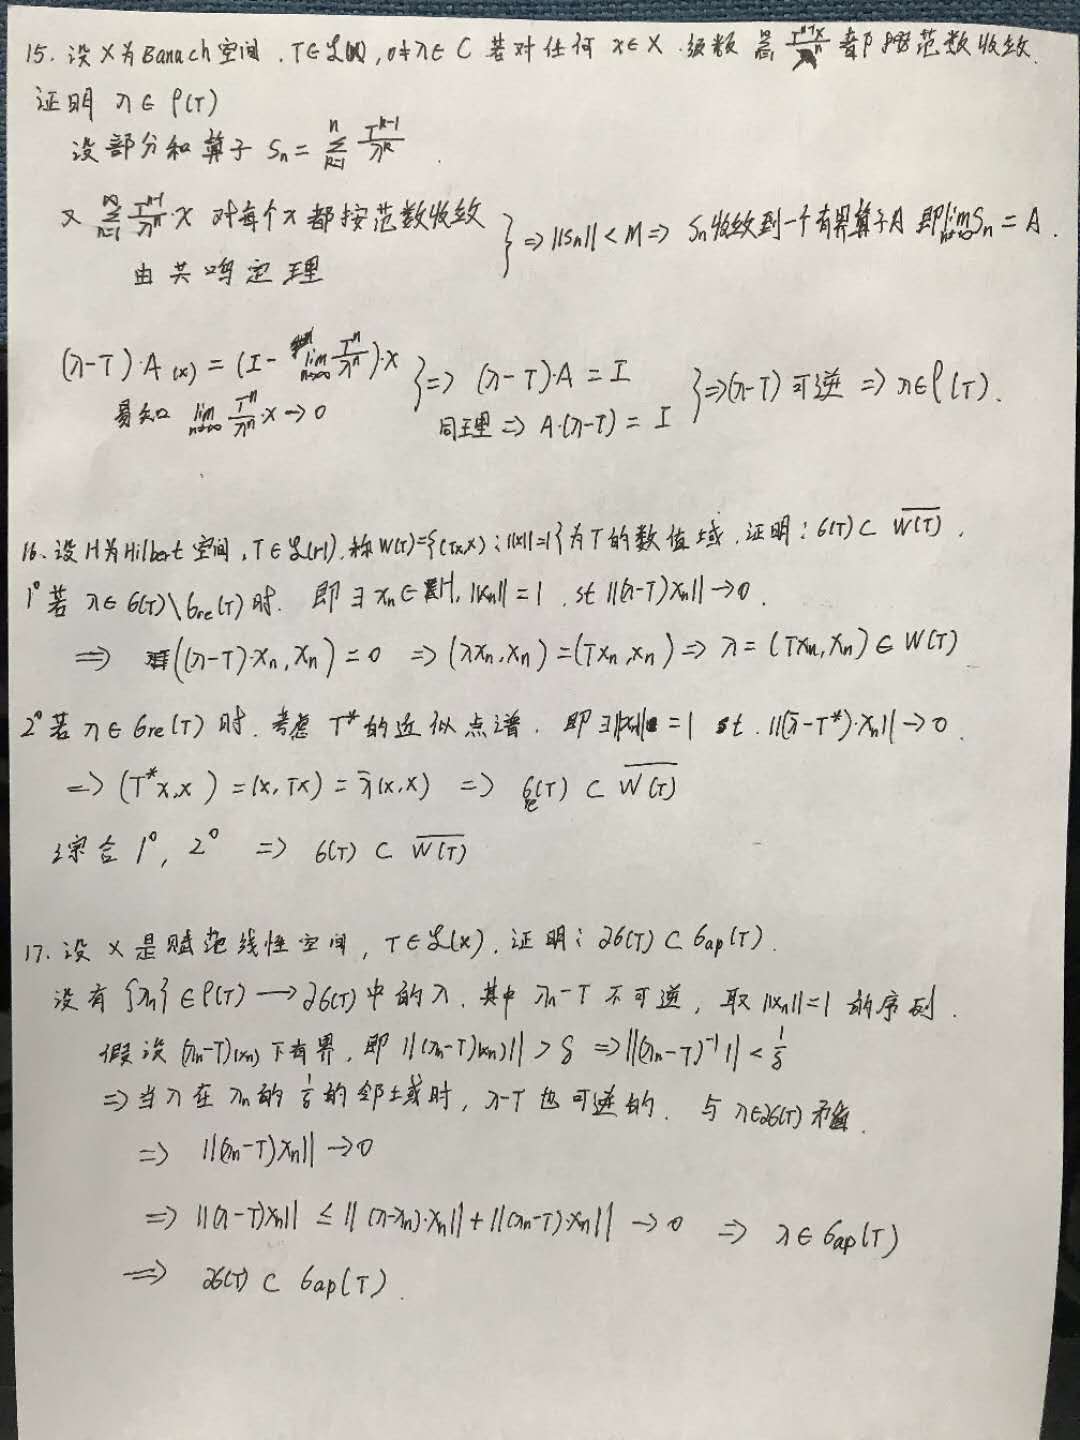 15. 设 X 为 Banach 空间, T∈𝓛(X), 0≠λ∈C 若对任何 x∈X. 级数 ∑ T^{n-1}x/λ^n 都按范数收敛.
证明 λ∈ρ(T)
设部分和算子 S_n = ∑_{k=1}^{n} T^{k-1}/λ^k
又 ∑_{n=1}^{∞} T^{n-1}/λ^n · x 对每个 x 都按范数收敛
由共鸣定理
} ⇒ ||S_n|| < M ⇒ S_n 收敛到一个有界算子 A 即 lim_{n→∞} S_n = A.
(λ-T)·A(x) = (I - lim_{n→∞} T^n/λ^n)·x
易知 lim_{n→∞} T^n/λ^n · x → 0
} ⇒ (λ-T)·A = I
同理 ⇒ A·(λ-T) = I
} ⇒ (λ-T) 可逆 ⇒ λ∈ρ(T).
16. 设 H 为 Hilbert 空间, T∈𝓛(H). 称 W(T)={(Tx,x): ||x||=1} 为 T 的数值域. 证明: σ(T) ⊂ \overline{W(T)}.
1° 若 λ∈σ(T)\σ_{re}(T) 时. 即 ∃ x_n∈H, ||x_n||=1. st ||(λ-T)x_n||→0.
⇒ ((λ-T)·x_n, x_n) = 0 ⇒ (λx_n, x_n) = (Tx_n, x_n) ⇒ λ = (Tx_n, x_n) ∈ W(T)
2° 若 λ∈σ_{re}(T) 时. 考虑 T* 的近似点谱. 即 ∃||x_n|| = 1 st. ||(\bar{λ}-T*)·x_n||→0.
⇒ (T*x,x) = (x,Tx) = \bar{λ}(x,x) ⇒ σ_{re}(T) ⊂ \overline{W(T)}
综合 1°, 2° ⇒ σ(T) ⊂ \overline{W(T)}
17. 设 X 是赋范线性空间, T∈𝓛(X). 证明: ∂σ(T) ⊂ σ_{ap}(T).
设有 {λ_n}∈ρ(T) → ∂σ(T) 中的 λ. 其中 λ_n-T 不可逆, 取 ||x_n||=1 的序列.
假设 (λ_n-T)(x_n) 下有界, 即 ||(λ_n-T)(x_n)|| > δ ⇒ ||(λ_n-T)^{-1}|| < 1/δ
⇒ 当 λ 在 λ_n 的 1/δ 的邻域时, λ-T 也可逆的. 与 λ∈∂σ(T) 矛盾.
⇒ ||(λ_n-T)x_n||→0
⇒ ||(λ-T)x_n|| ≤ ||(λ-λ_n)·x_n|| + ||(λ_n-T)·x_n|| → 0 ⇒ λ∈σ_{ap}(T)
⇒ ∂σ(T) ⊂ σ_{ap}(T).